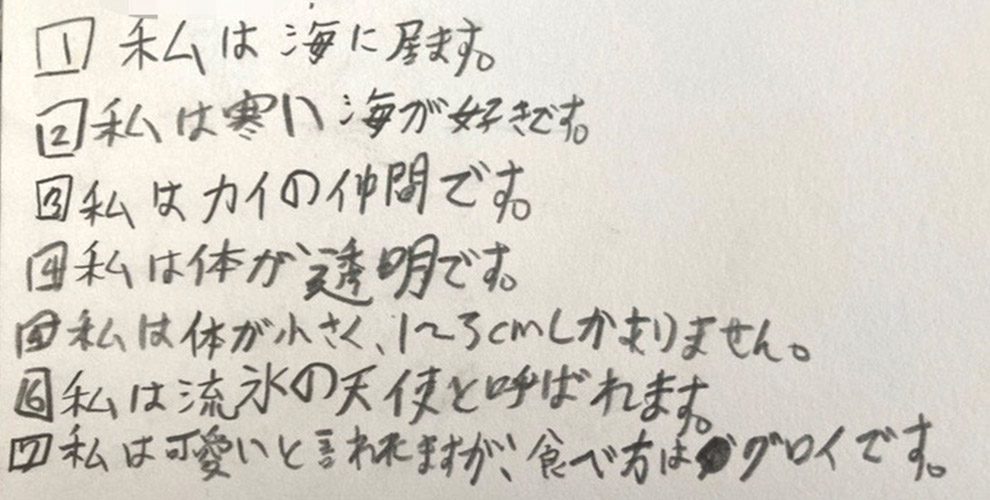 1 私は海に居ます。
2 私は寒い海が好きです。
3 私はカイの仲間です。
4 私は体が透明です。
5 私は体が小さく、1~3cmしかありません。
6 私は流氷の天使と呼ばれます。
7 私は可愛いと言われますが、食べ方はグロイです。